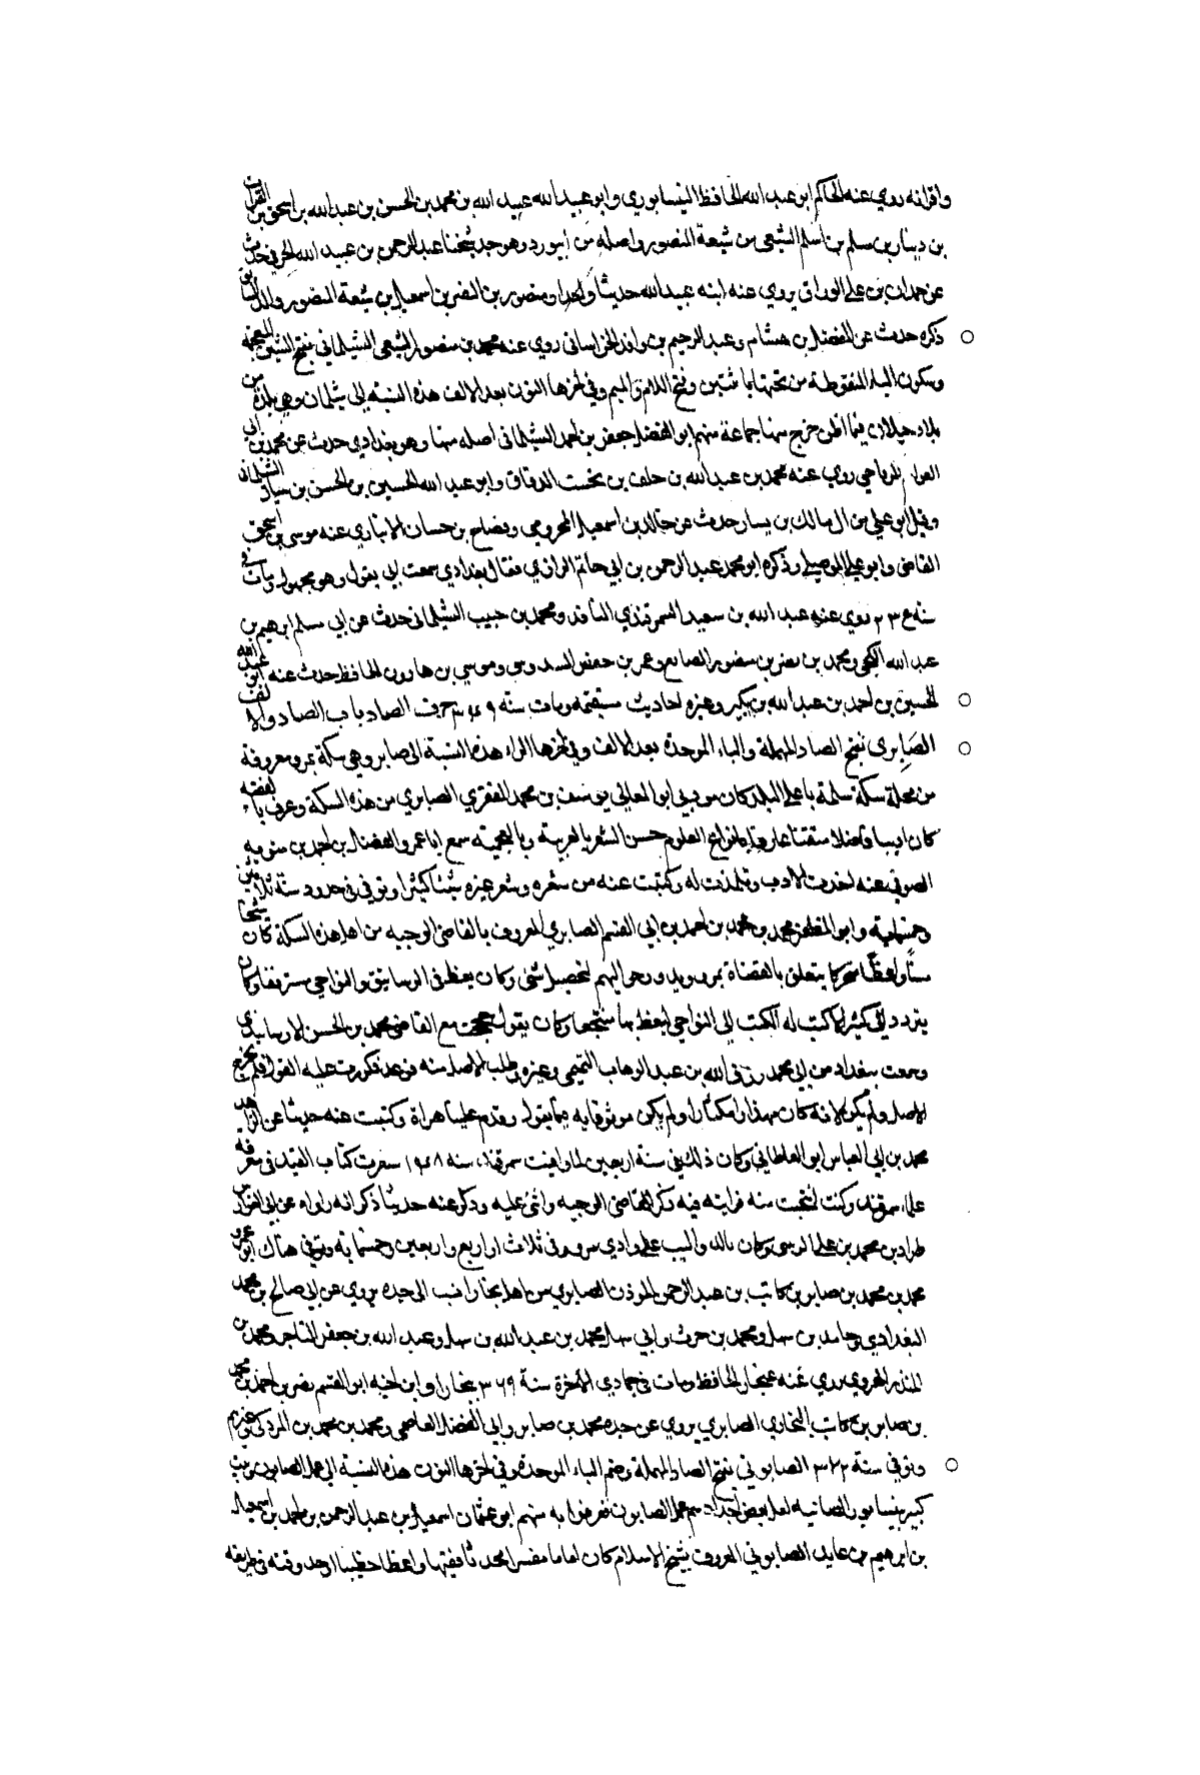 واقرانه روى عنه الحاكم ابو عبد الله الحافظ النيسابوري وابو عبيد الله عبيد الله بن محمد بن الحسن بن عبد الله بن اسحق بن الفرات
بن دينار بن سلم بن اسلم الشيعى من شيعة المنصور واصله من ابيورد وهو جد شيخنا عبد الرحمن بن عبيد الله الحرفى حدث
عن حمدان بن على الوراق يروي عنه ابنه عبيد الله حديثا واحدا ومنصور بن النضر بن اسمعيل بن شيعة المنصور والد
ذكره حدث عن الفضل بن هشام وعبد الرحيم بن واقد الخراسانى روي عنه محمد بن منصور الشيعى الشيلمانى بفتح الشين المعجمة
وسكون الياء المنقوطة من تحتها باثنتين وفتح اللام والميم وفي اخرها النون بعد الالف هذه النسبة الى شيلمان وهي بلدة من
بلاد جيلان فيما اظن خرج منها جماعة منهم ابو الفضل جعفر بن احمد الشيلمانى اصله منها وهو بغدادي حدث عن محمد بن ابي
العوام الرياحي روي عنه محمد بن عبد الله بن خلف بن بخيت الدقاق وابو عبد الله الحسين بن الحسن بن الشيلمانى
وقيل ابو علي من ال مالك بن يسار حدث عن خالد بن اسمعيل المخرومي ووضاح بن حسان الانباري عنه موسى بن اسحق
القاضى وابو علي الموصلي وذكره ابو محمد عبد الرحمن بن ابي حاتم الرازي فقال بغدادي سمعت ابي يقول وهو مجهول ومات في
سنة روي عنه عبد الله بن سعيد السمرقندي الناقد ومحمد بن حبيب الشيلمانى حدث عن ابي مسلم ابرهيم بن
عبد الله الكجي ومحمد بن نصر بن منصور الصايغ وعمر بن حفص السدوسى وموسي بن هارون الحافظ حدث عنه ابو عبد الله
الحسين بن احمد بن عبد الله بن بكير وغيره احاديث مستقيمة ومات سنة حرف الصاد باب الصاد والالف
الصَابِرى بفتح الصاد المهملة والباء الموحدة بعد الالف وفي اخرها الراء هذه النسبة الى صابر وهي سكة بمرو معروفة
من محلة سكة سلمة باعلى البلد كان من ابو المعالي يوسف بن محمد الفقري الصابري من هذه السكة وعرف
كان اديبا فاضلا متقنا عارفا بانواع العلوم حسن الشعر بالعربية وبالعجمية سمع ابا عمرو الفضل بن احمد بن متويه
الصوفي عنه اخذت الادب وتلمذت له وكتبت عنه من شعره وشعر غيره شيئا كثيرا وتوفي في حدود سنة ثلاثين
وخمسماية وابو المظفر محمد بن محمد بن احمد بن ابي القسم الصابري المعروف بالقاضى الوجيه من اهل هذه السكة كان شيخا
مسنّا واعظا متحركا يتعلق بالقضاة بمرو ويدور حواليهم لتحصيل شى وكان يعظ في الرساتيق والنواحي وكان
يتردد الي كثيرا ما كتب له الكتب الى النواحي ليعظ بها وكان يقول مع القاضى محمد بن الحسن الارسابندي
وسمعت ببغداد من ابي محمد رزق الله بن عبد الوهاب التميمى وغيره طلب الاصل منه فوعد فكررت عليه القول فلم يخرج
الاصل ولم يكن لانه كان مهذارا مكثارا ولم يكن موثوقا به فيما يقول وقدم علينا هراة وكتبت عنه حديثا عن الزاهد
محمد بن ابي العباس ابو العلطاني وكان ذلك في سنة اربعين لما وافيت سمرقند سنة كتاب القند في معرفة
علماء سمرقند وكنت انتخبت منه فرايته فيه ذكر القاضى الوجيه واثنى عليه وذكر عنه حديثا ذكر انه رواه عن ابي الفوارس
طراد بن محمد بن علي الزينبي وكان في ثلاث او اربع واربعين وخمسماية وتوفي هناك ابو عمرو
محمد بن محمد بن صابر بن كاتب بن عبد الرحمن الموذن الصابري من اهل بخارا نسب الى جده يروي عن ابي صالح بن محمد
البغدادي وحامد بن سهل ومحمد بن حريث وابي سهل محمد بن عبد الله بن سهل وعبد الله بن جعفر التاجر ومحمد بن
المنذر الهروي يروي عنه غنجار الحافظ ومات في جمادي الاخرة سنة ٣٦٩ ببخارا وابن اخيه ابو القسم نصر بن احمد بن محمد
بن صابر بن كاتب البخاري الصابري يروي عن جده محمد بن صابر وابي الفضل العاصمي ومحمد بن محمد بن المردكي وغيرهم
وتوفي سنة الصابوني بفتح الصاد المهملة وضم الباء الموحدة وفي اخرها النون هذه النسبة الى عمل الصابون وبيت
كبير بنيسابور الصابونية لعل بعض اجدادهم عمل الصابون فعرفوا به منهم ابو عثمان اسمعيل بن عبد الرحمن بن احمد بن اسمعيل
بن ابرهيم بن عابد الصابوني المعروف بشيخ الاسلام كان اماما مفسرا محدثا فقيها واعظا خطيبا اوحد وقته في طريقه